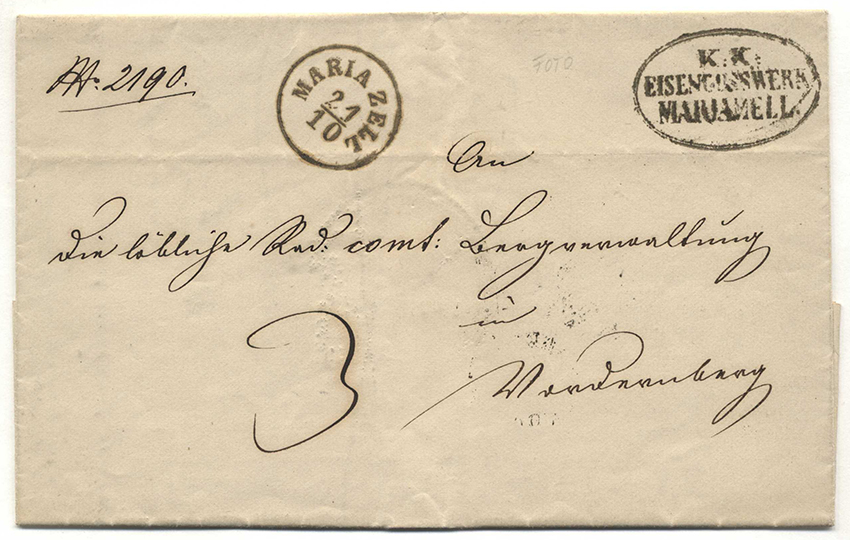 No. 2190.
MARIA ZELL
21/10
FOTO
K. K.
EISENGUSSWERK
MARIAZELL.
An
die löbliche Rad: comt: Bergverwaltung
in
3
Vordernberg